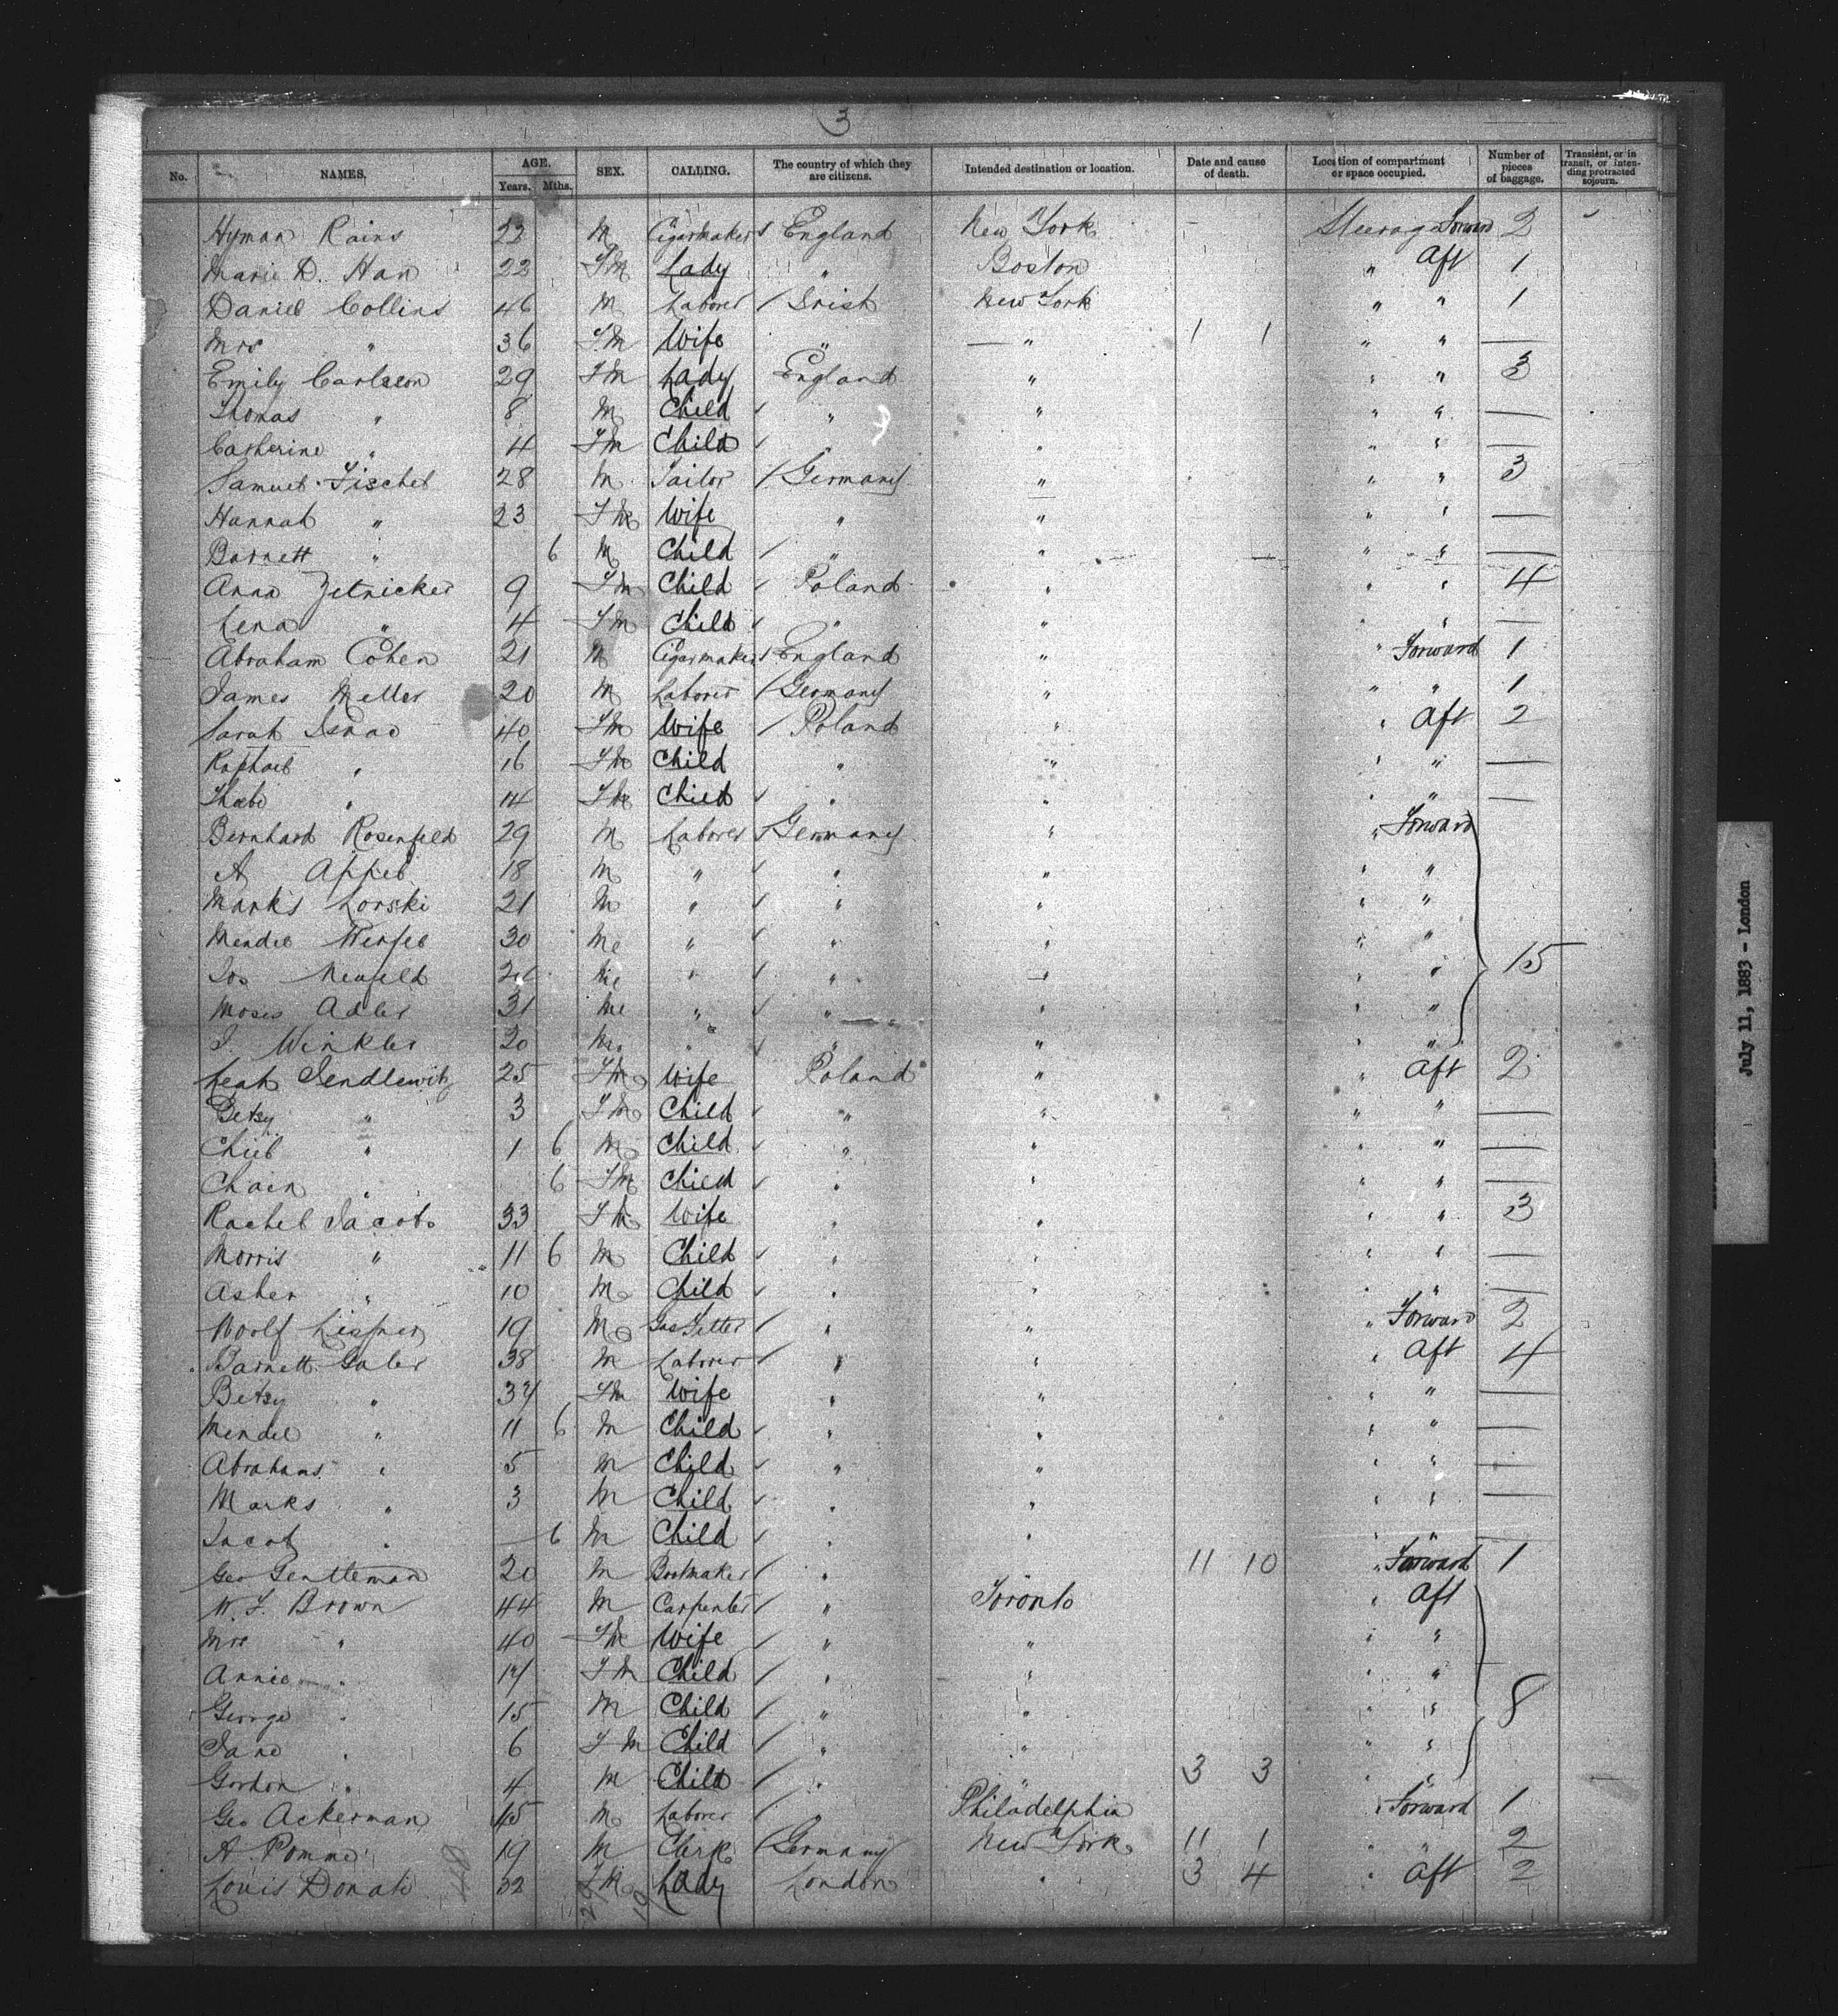 3
No. NAMES. AGE. Years. Mths. SEX. CALLING. The country of which they are citizens. Intended destination or location. Date and cause of death. Location of compartment or space occupied. Number of pieces of baggage. Transient, or in transit, or intending protracted sojourn.
Hyman Rains 22 M Cigarmaker England New York Steerage Forward 2
Marie D. Han 22 Fm Lady " Boston " Aft 1
Daniel Collins 46 M Laborer Irish New York " " 1
Mrs " 36 Fm Wife " — " 1 1 " " —
Emily Carlson 29 Fm Lady England " " " 3
Thomas " 8 M Child " " " " —
Catherine " 4 Fm Child " " " " —
Samuel Fischel 28 M Tailor Germany " " " 3
Hannah " 23 Fm Wife " " " " —
Barnett " 6 M Child " " " " —
Anna Zetnicker 9 Fm Child Poland " " " 4
Lena " 4 Fm Child " " " " —
Abraham Cohen 21 M Cigarmaker England " " Forward 1
James Meller 20 M Laborer Germany " " " 1
Sarah Isaac 40 Fm Wife Poland " " Aft 2
Raphael " 16 Fm Child " " " " —
Phoebe " 14 Fm Child " " " " —
Bernhard Rosenfeld 29 M Laborer Germany " " Forward
A Appel 18 M " " " " "
Marks Lorski 21 M " " " " "
Mendel 30 M " " " " "
Jos Neufeld M " " " " " 15
Moses Adler 31 M " " " " "
I. Winkler 20 M " " " " "
Leah Sendlewitz 25 Fm Wife Poland " " Aft 2
Betsy " 3 Fm Child " " " " —
" 1 6 M Child " " " " —
" 6 Fm Child " " " " —
Rachel Jacobs 33 Fm Wife " " " " 3
Morris " 11 6 M Child " " " " —
Asher " 10 M Child " " " " —
Woolf 19 M Gas Fitter " " " Forward 2
Barnett Galer 38 M Laborer " " " Aft 4
Betsy " 37 Fm Wife " " " " —
Mendel " 11 6 M Child " " " " —
Abrahams " 5 M Child " " " " —
Marks " 3 M Child " " " " —
Jacob " — 6 M Child " " " " —
Geo Gentleman 20 M Bootmaker " " 11 10 " Forward 1
W. F. Brown 44 M Carpenter " Toronto " Aft
Mrs " 40 Fm Wife " " " "
Annie " 17 Fm Child " " " "
George " 15 M Child " " " " 8
Jane " 6 Fm Child " " " "
Gordon " 4 M Child " " 3 3 " "
Geo Ackerman 45 M Laborer Philadelphia " Forward 1
A Pomme 19 M Clerk Germany New York 11 1 " " 2
Louis Donati 32 Fm Lady London " 3 4 " Aft 2
July 11, 1883 - London